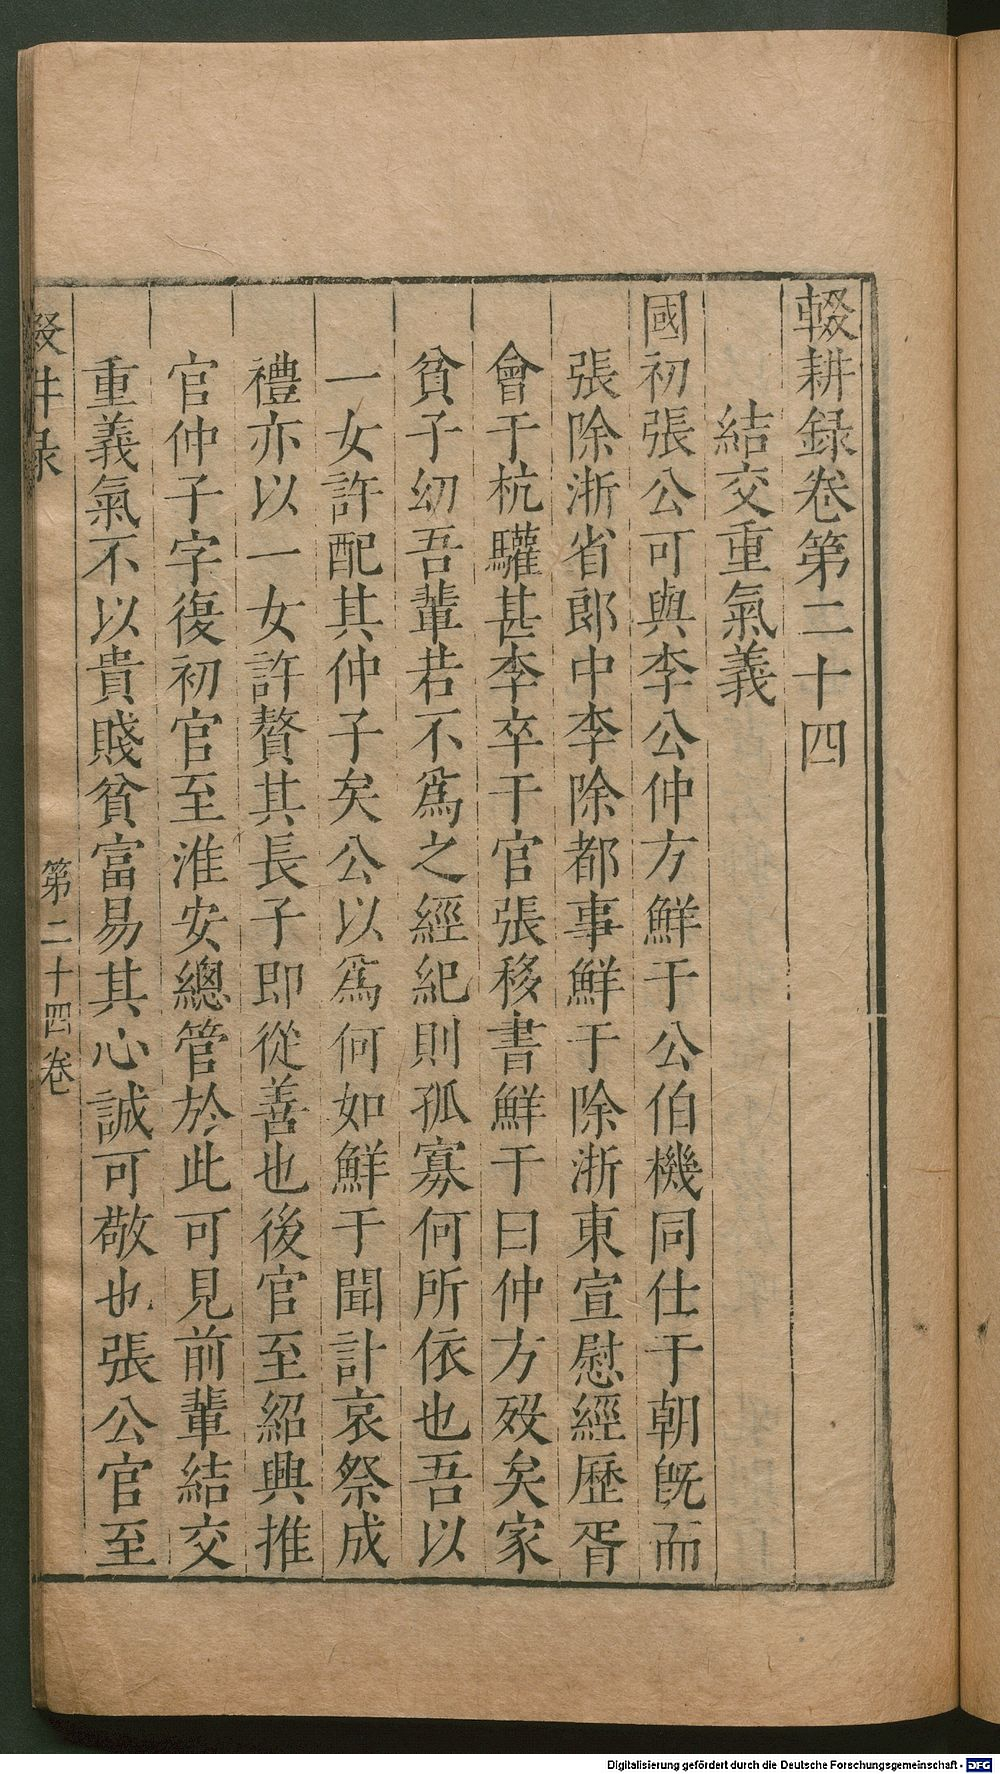 輟耕録卷第二十四
結交重氣義
國初張公可與李公仲方鮮于公伯機同仕于朝旣而
張除浙省郎中李除都事鮮于除浙東宣慰經歷胥
會于杭驩甚李卒于官張移書鮮于曰仲方歿矣家
貧子幼吾輩若不爲之經紀則孤寡何所依也吾以
一女許配其仲子矣公以爲何如鮮于聞訃哀祭成
禮亦以一女許贅其長子即從善也後官至紹興推
官仲子字復初官至淮安總管於此可見前輩結交
重義氣不以貴賤貧富易其心誠可敬也張公官至
輟耕録 第二十四卷
Digitalisierung gefördert durch die Deutsche Forschungsgemeinschaft - DFG